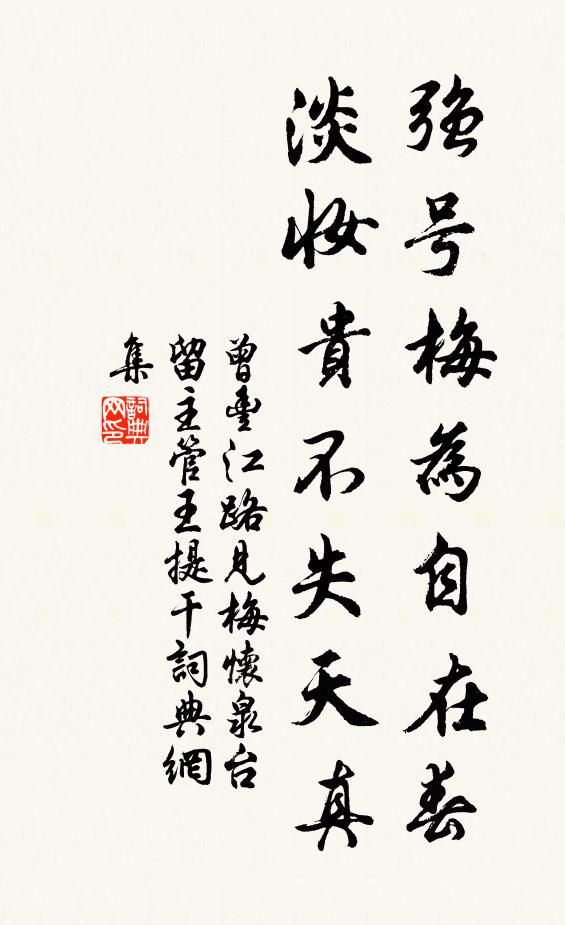 强号梅為自在春
淡妝貴不失天真
曾豐江路見梅懷泉台
留主管王提干詞典網
集
詞典
网印